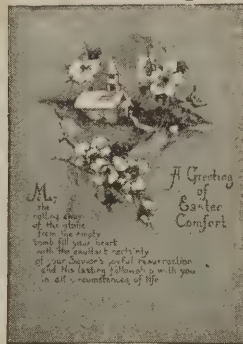 A Greeting
of
Easter
Comfort
May
the
rolling away
of the stone
from the empty
tomb fill your heart
with the exultant certainty
of your Saviour's joyful resurrection
and His lasting fellowship with you
in all circumstances of life